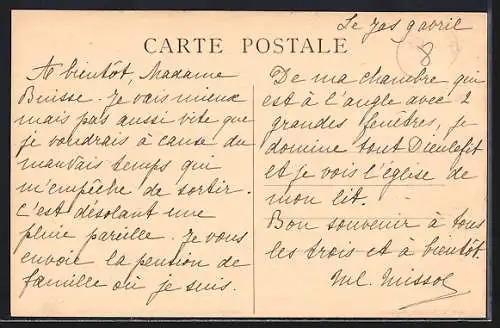 Le Jas 9 avril
8
CARTE POSTALE
A bientôt, Madame
Buisse. Je vais mieux
mais pas aussi vite que
je voudrais à cause du
mauvais temps qui
m'empêche de sortir.
C'est désolant une
pluie pareille. Je vous
envoie la pension de
famille où je suis.
De ma chambre qui
est à l'angle avec 2
grandes fenêtres, je
domine tout Dieulefit
et je vois l'église de
mon lit.
Bon souvenir à tous
les trois et à bientôt.
Ml. Missol